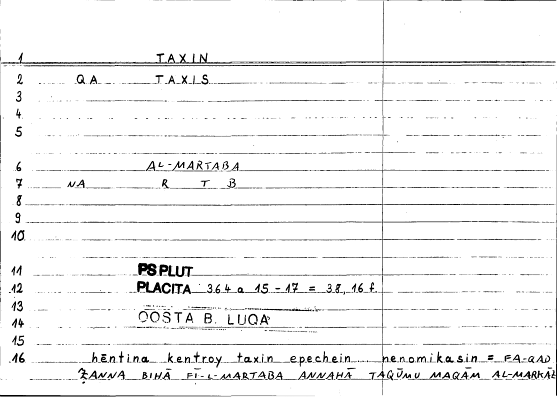 1 TAXIN
2 QA TAXIS
3
4
5
6 AL-MARTABA
7 NA R T B
8
9
10
11 PSPLUT
12 PLACITA 364 a 15-17 = 38, 16 f.
13
14 QOSTA B. LUQA
15
16 hēntina kentroy taxin epechein nenomikasin = FA-QAD
ẒANNA BIHĀ FĪ-L-MARTABA ANNAHĀ TAQŪMU MAQĀM